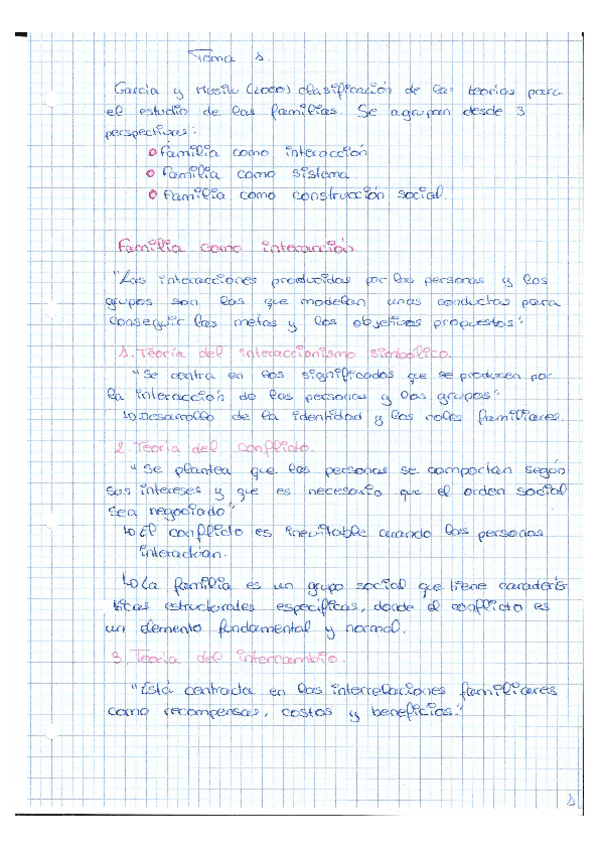 Tema 1.
García y Musitu (2000) clasificación de las teorías para
el estudio de las familias. Se agrupan desde 3
perspectivas:
familia como interacción
familia como sistema
familia como construcción social.
Familia como interacción
"Las interacciones producidas por las personas y los
grupos son las que modelan unas conductas para
conseguir las metas y los objetivos propuestos".
1. Teoría del interaccionismo simbólico.
"Se centra en los significados que se producen por
la interacción de las personas y los grupos"
↳ Desarrollo de la identidad y los roles familiares.
2. Teoría del conflicto.
"Se plantea que las personas se comportan según
sus intereses y que es necesario que el orden social
sea negociado"
↳ El conflicto es inevitable cuando las personas
interactúan.
↳ La familia es un grupo social que tiene caracterís
ticas estructurales específicas, donde el conflicto es
un elemento fundamental y normal.
3. Teoría del intercambio.
"Está centrada en las interrelaciones familiares
como recompensas, costos y beneficios."
1